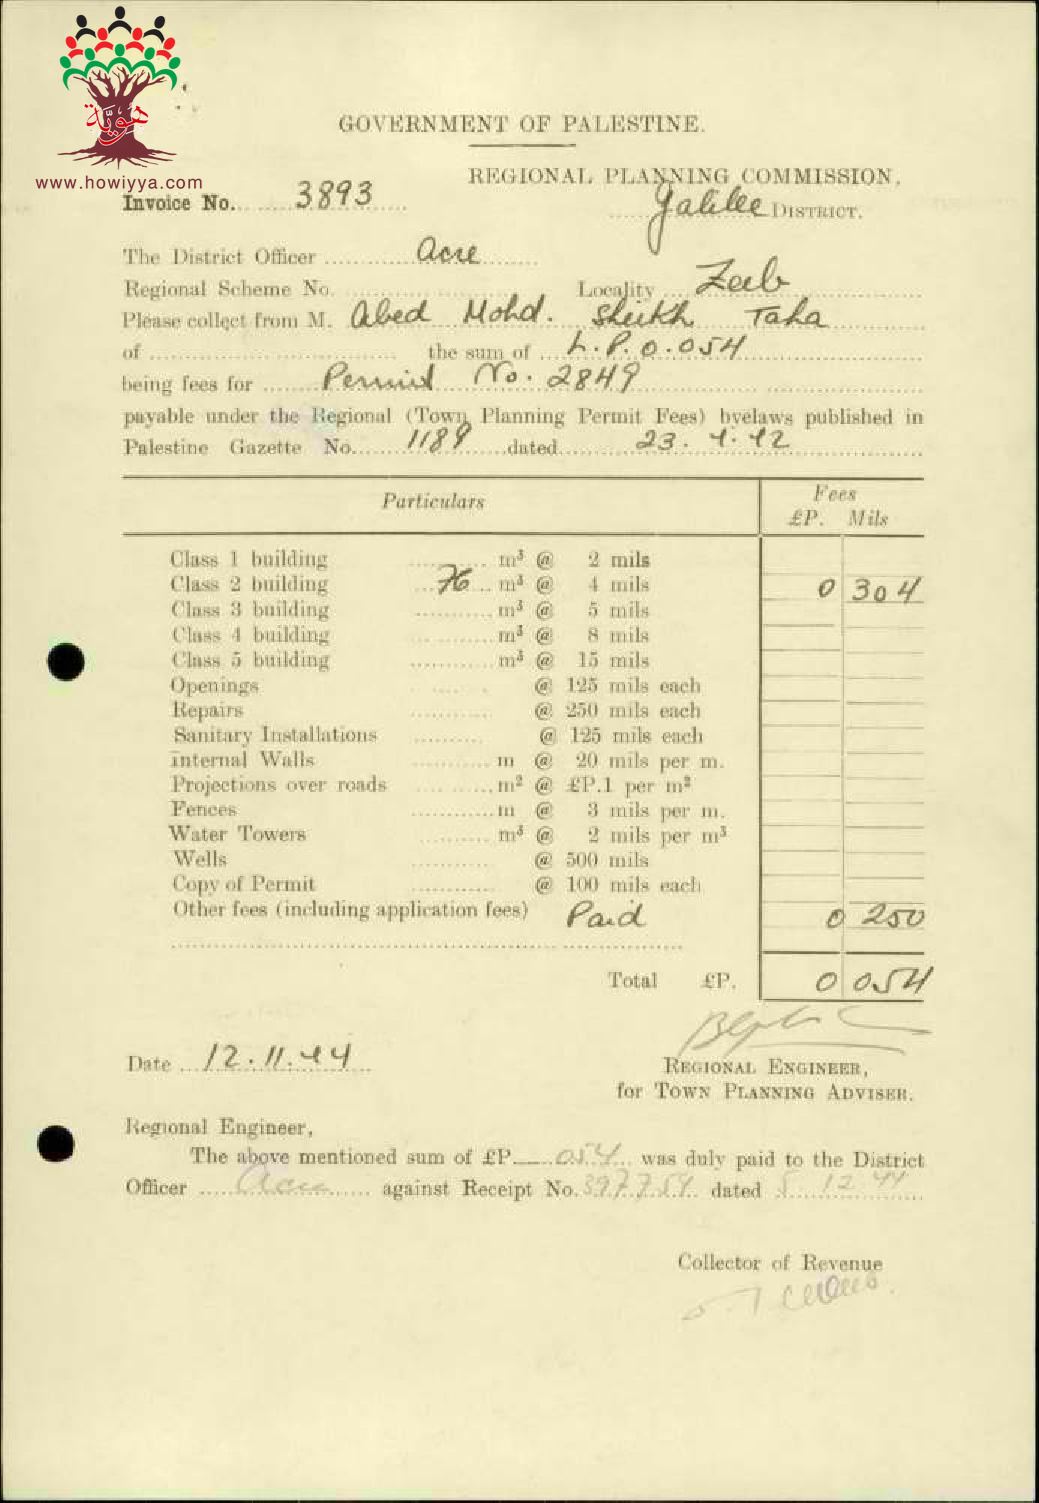 هويّة
www.howiyya.com
GOVERNMENT OF PALESTINE.
REGIONAL PLANNING COMMISSION.
Invoice No. 3893
Galilee DISTRICT.
The District Officer Acre
Regional Scheme No. Locality Zeeb
Please collect from M. Abed Mohd. Sheikh Taha
of the sum of L.P.0.054
being fees for Permit No. 2849
payable under the Regional (Town Planning Permit Fees) byelaws published in
Palestine Gazette No. 1189 dated 23.4.42
Particulars Fees
£P. Mils
Class 1 building m³ @ 2 mils
Class 2 building 76 m³ @ 4 mils 0 304
Class 3 building m³ @ 5 mils
Class 4 building m³ @ 8 mils
Class 5 building m³ @ 15 mils
Openings @ 125 mils each
Repairs @ 250 mils each
Sanitary Installations @ 125 mils each
Internal Walls m @ 20 mils per m.
Projections over roads m² @ £P.1 per m²
Fences m @ 3 mils per m.
Water Towers m³ @ 2 mils per m³
Wells @ 500 mils
Copy of Permit @ 100 mils each
Other fees (including application fees) Paid 0 250
Total £P. 0 054
Date 12.11.44
REGIONAL ENGINEER,
for TOWN PLANNING ADVISER.
Regional Engineer,
The above mentioned sum of £P. 054 was duly paid to the District
Officer Acre against Receipt No. 397754 dated 5 12 44
Collector of Revenue